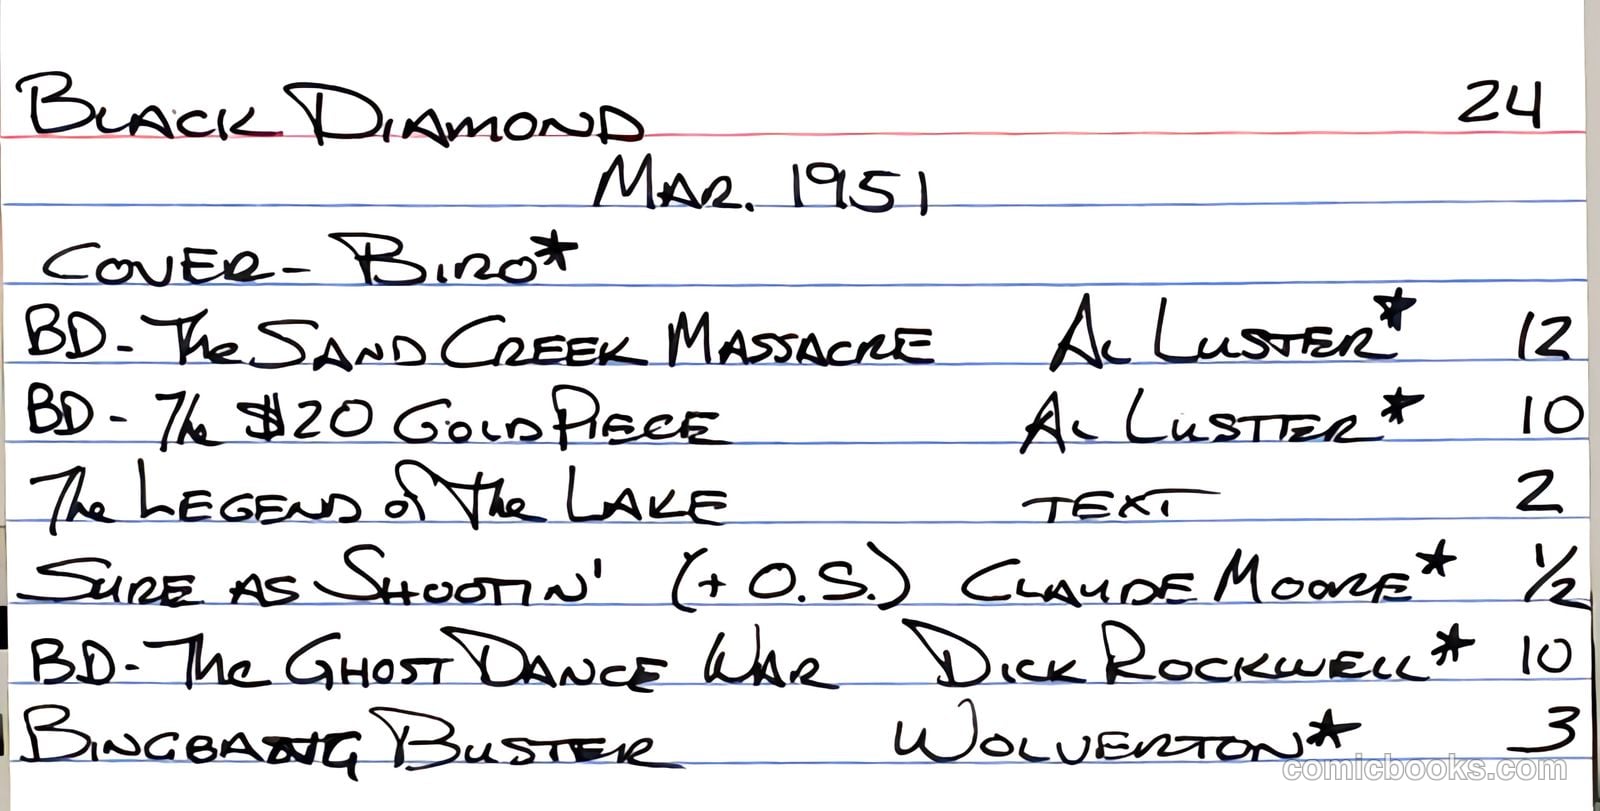 BLACK DIAMOND 24
MAR. 1951
COVER - BIRO*
BD - The SAND CREEK MASSACRE AL LUSTER* 12
BD - The $20 GOLD PIECE AL LUSTER* 10
The LEGEND of The LAKE TEXT 2
SURE AS SHOOTIN' (+ O.S.) CLAUDE MOORE* 1/2
BD - The GHOST DANCE WAR DICK ROCKWELL* 10
BINGBANG BUSTER WOLVERTON* 3
comicbooks.com